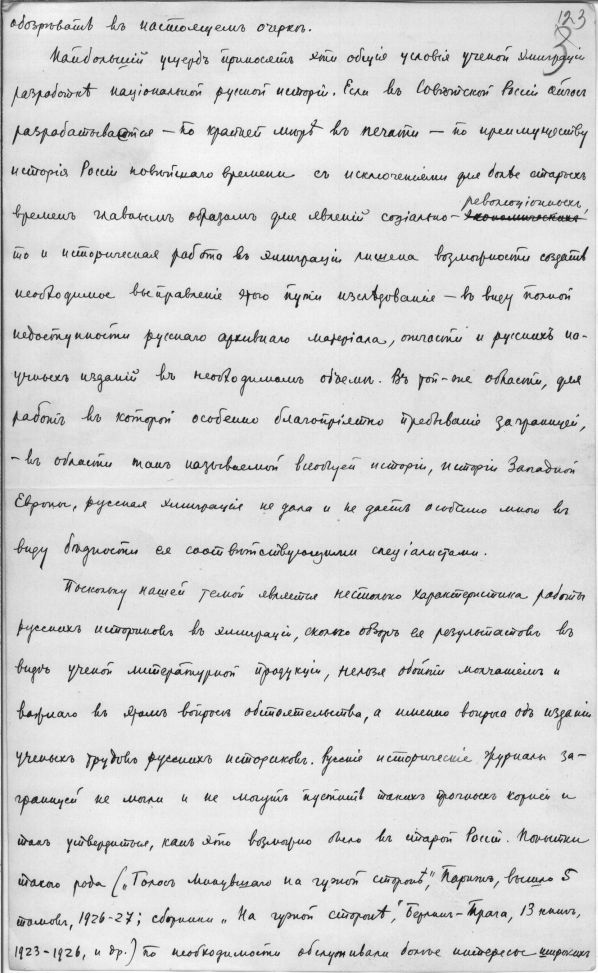 123
3
обозрѣвать въ настоящемъ очеркѣ.
Наибольшій ущербъ приносятъ эти общія условія ученой эмиграціи
разработкѣ національной русской исторіи. Если въ Совѣтской Россіи сейчасъ
разрабатывается – по крайней мѣрѣ въ печати – по преимуществу
исторія Россіи новѣйшаго времени съ исключеніями для болѣе старыхъ
революціонныхъ,
временъ главнымъ образомъ для явленій соціально-экономическихъ
то и историческая работа въ эмиграціи лишена возможности создать
необходимое выправленіе этого пути изслѣдованіе – въ виду полной
недоступности русскаго архивнаго матеріала, отчасти и русскихъ на-
учныхъ изданій въ необходимомъ объемѣ. Въ той-же области, для
работъ въ которой особенно благопріятно пребываніе заграницей,
– въ области такъ называемой всеобщей исторіи, исторіи Западной
Европы, русская эмиграція не дала и не дастъ особенно много въ
виду бѣдности ея соотвѣтствующими спеціалистами.
Поскольку нашей темой является нестолько характеристика работы
русскихъ историковъ въ эмиграціи, сколько обзоръ ея результатовъ въ
видѣ ученой литературной продукціи, нельзя обойти молчаніемъ и
важнаго въ этомъ вопросѣ обстоятельства, а именно вопроса объ изданіи
ученыхъ трудовъ русскихъ историковъ. Русскіе историческіе журналы за-
границей не могли и не могутъ пустить такихъ прочныхъ корней и
такъ утвердиться, какъ это возможно было въ старой Россіи. Попытки
такого рода („Голосъ Минувшаго на чужой сторонѣ", Парижъ, вышло 5
томовъ, 1926-27; сборники „На чужой сторонѣ", Берлинъ-Прага, 13 книгъ,
1923-1926, и др.) по необходимости обслуживали болѣе интересы широкихъ